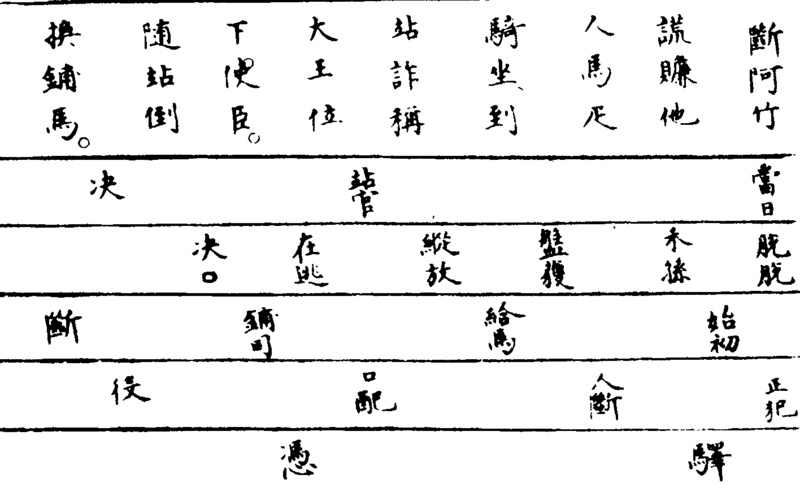 斷阿竹
謊賺他
人馬疋
騎坐到
站詐稱
大王位
下使臣。
隨站倒
換鋪馬。
當日
站官
决
脫脫
禾孫
盤獲
縱放
在逃
决□
始初
給馬
鋪司
斷
正犯
人斷
□配
役
驛
憑